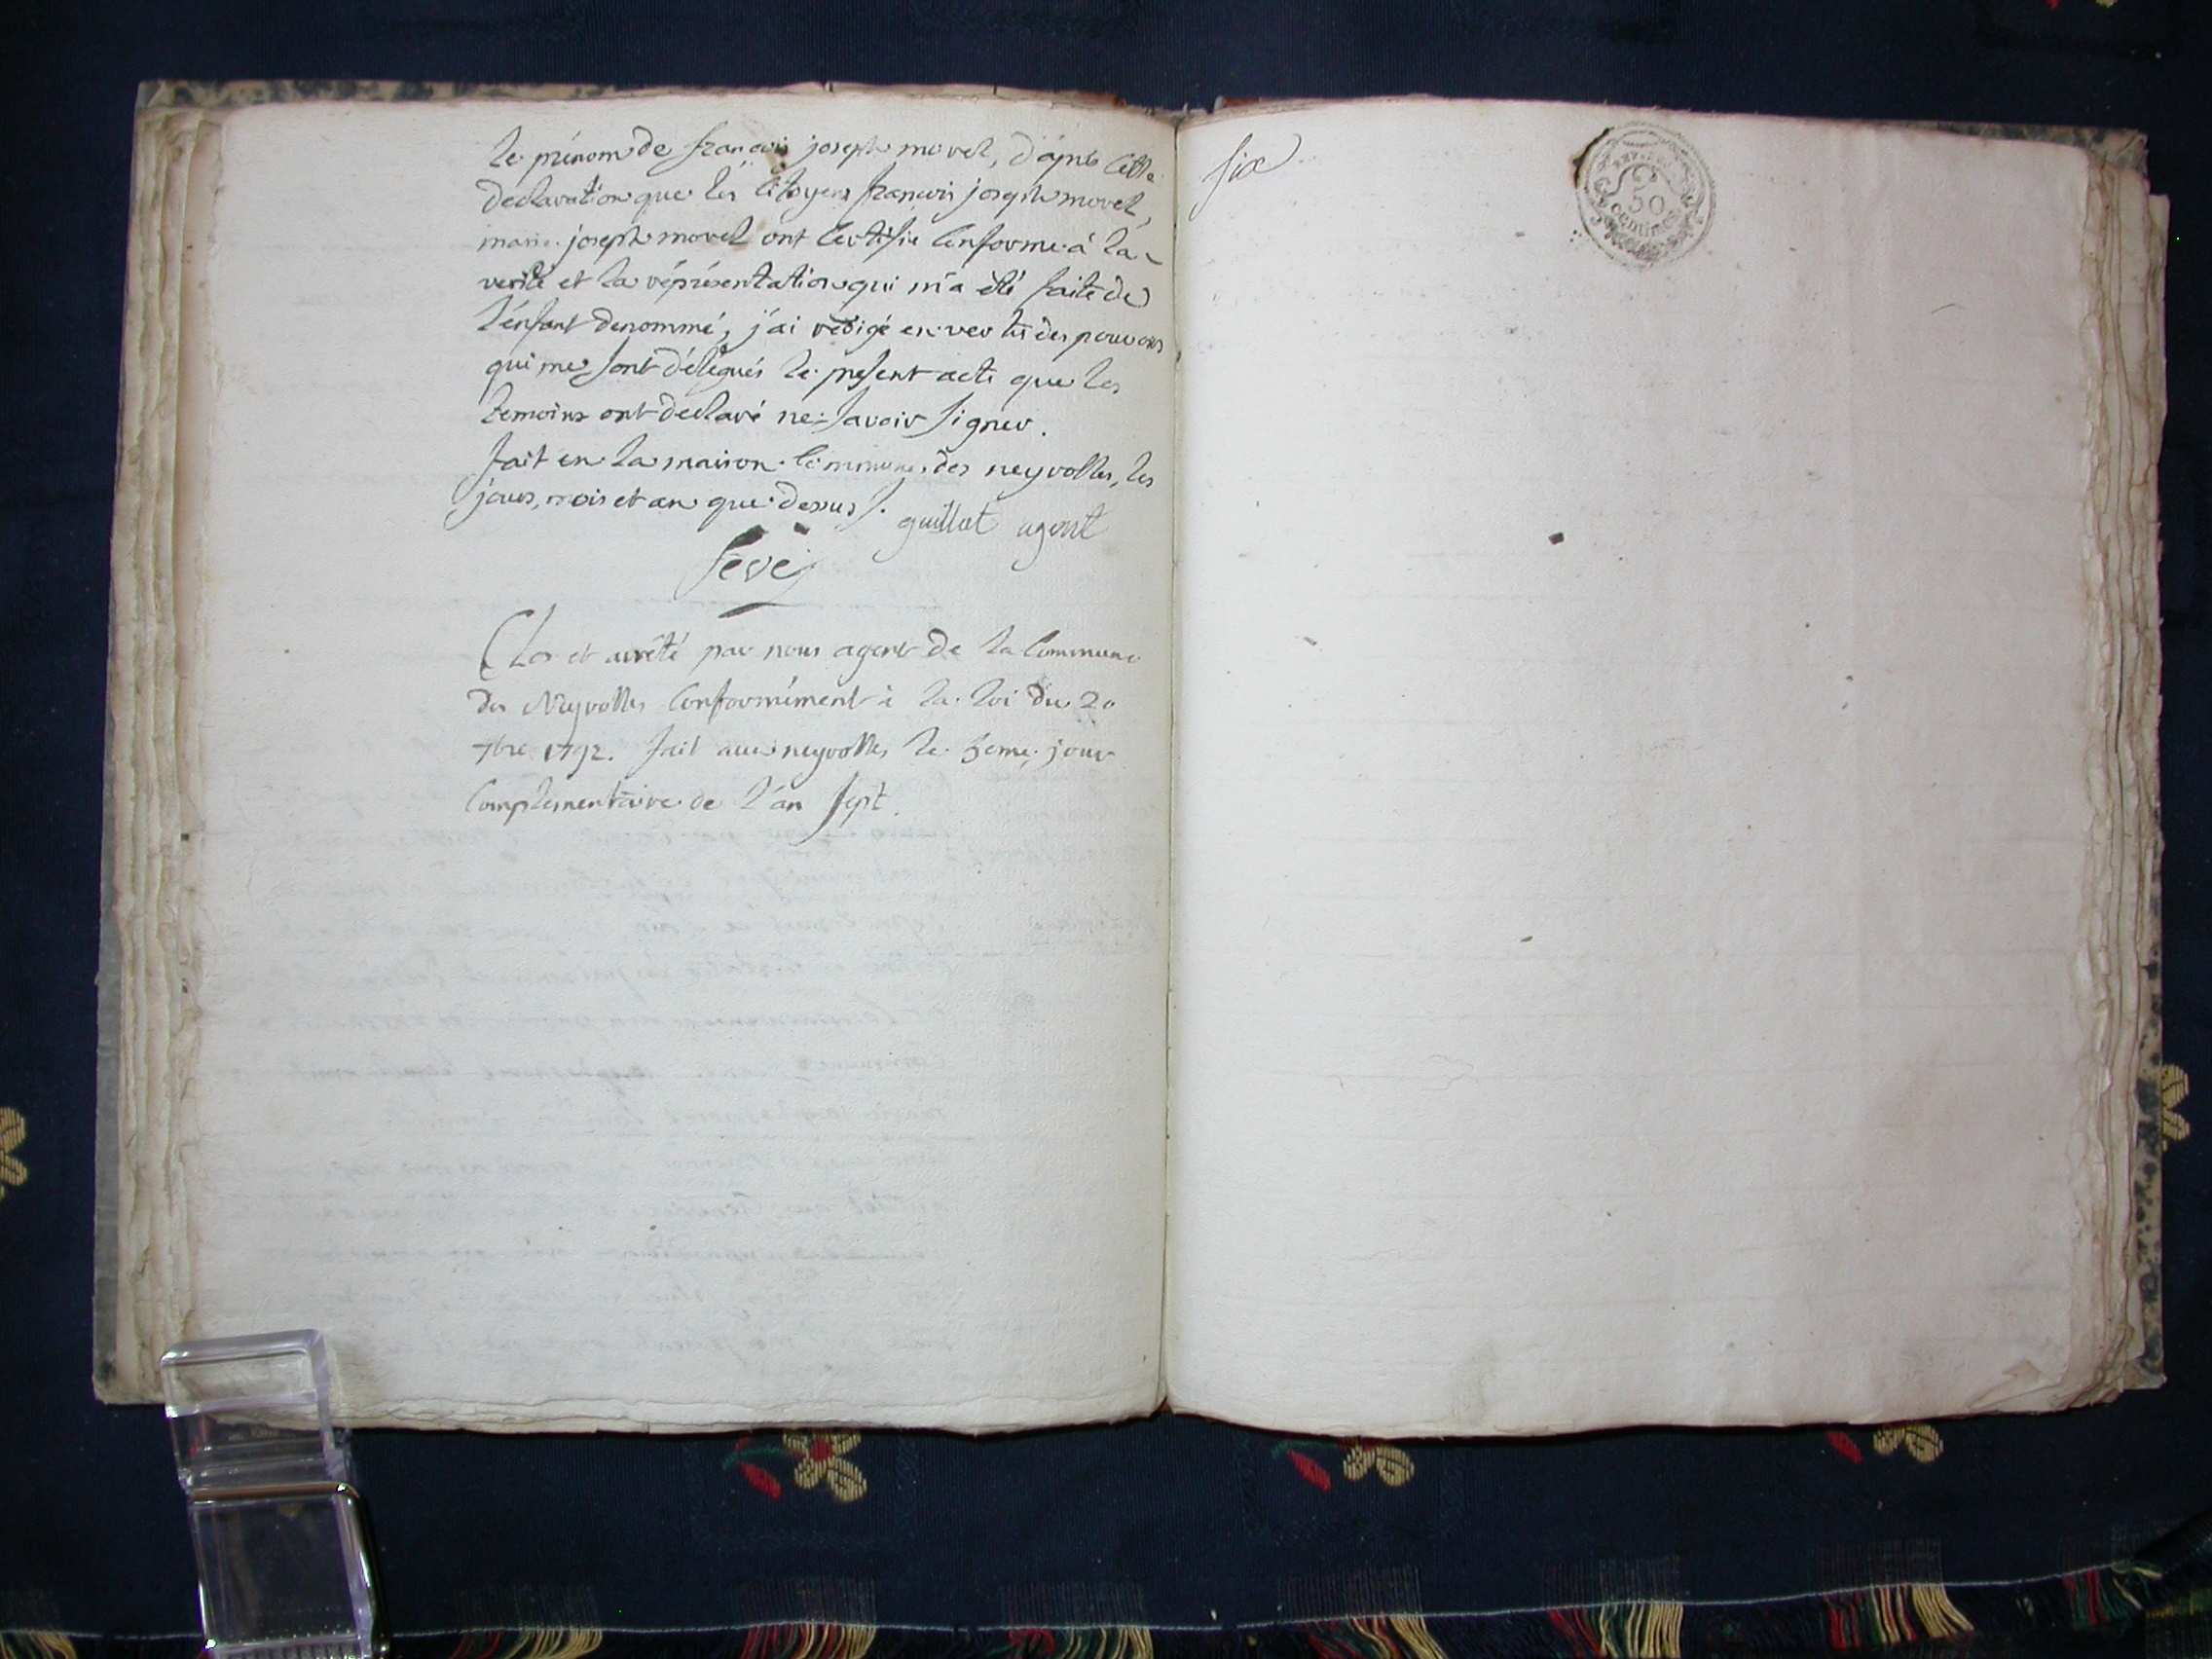 le prénom de françois joseph morel, d'après cette
declaration que les citoyens francois joseph morel,
marie joseph morel ont certifié conforme à la
verité et la réprésentation qui m'a été faite de
l'énfant denommé, j'ai redigé en vertu des pouvoirs
qui me sont délégués le present acte que les
temoins ont declaré ne savoir signer.
fait en la maison commune des neyrolles, les
jour, mois et an que dessus
guillot agent
Clos et arrêté par nous agent de la Commune
des Neyrolles Conformément à la loi du 20
7bre 1792. fait aux neyrolles le 5eme. jour
Complementaire de l'an sept.
six
50
CENTIMES